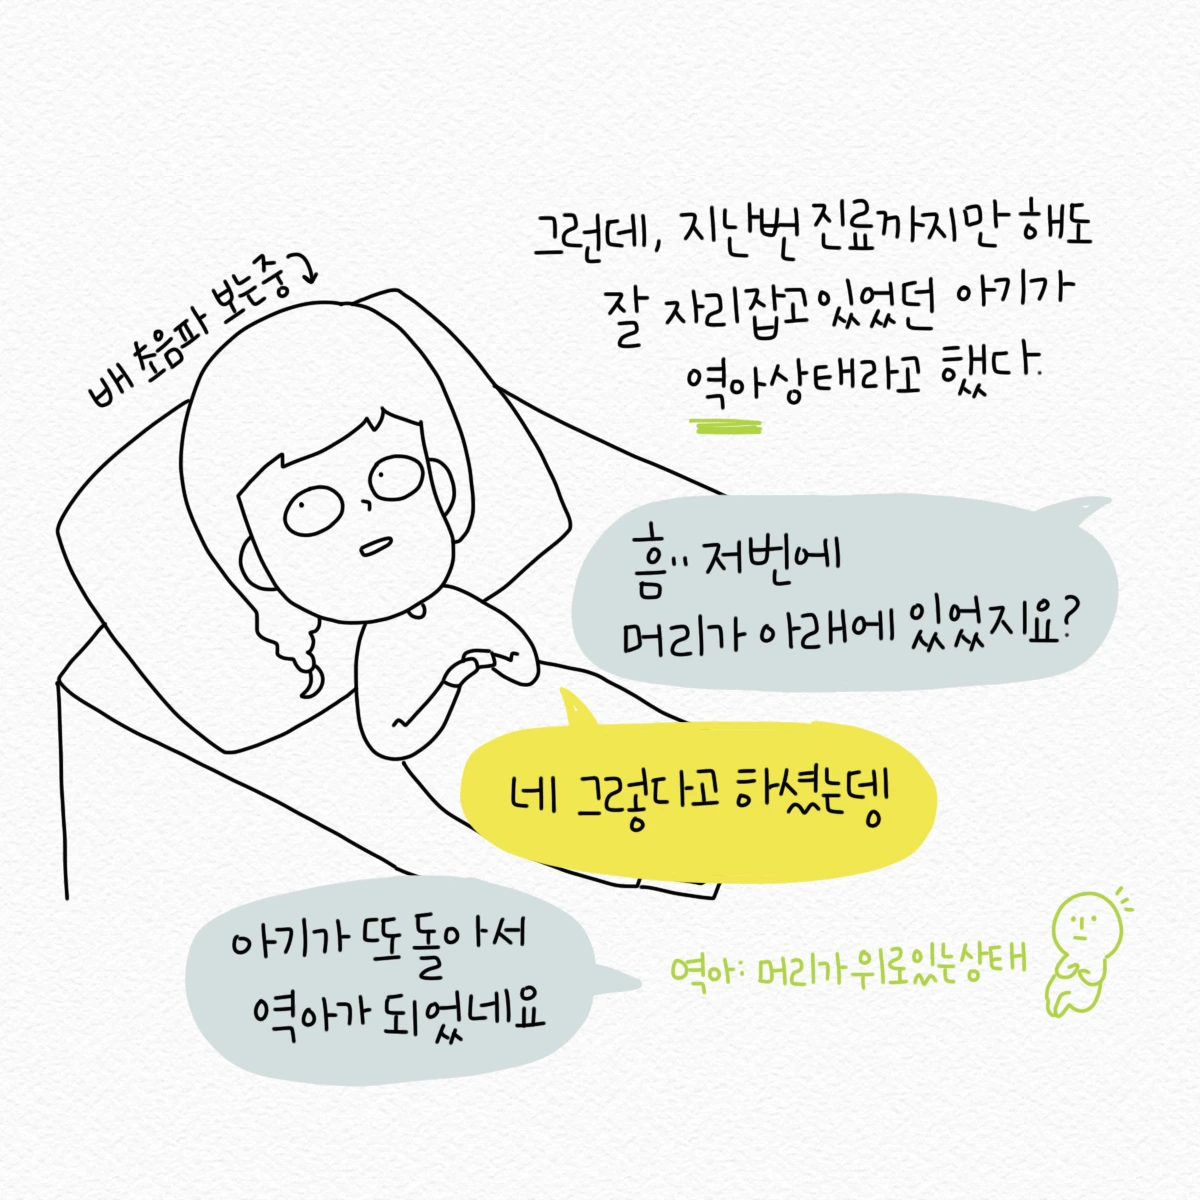 그런데, 지난번 진료까지만 해도
잘 자리잡고있었던 아기가
역아상태라고 했다.
배 초음파 보는중
흠.. 저번에
머리가 아래에 있었지요?
네 그렇다고 하셨는뎅
아기가 또 돌아서
역아가 되었네요
역아: 머리가 위로있는상태